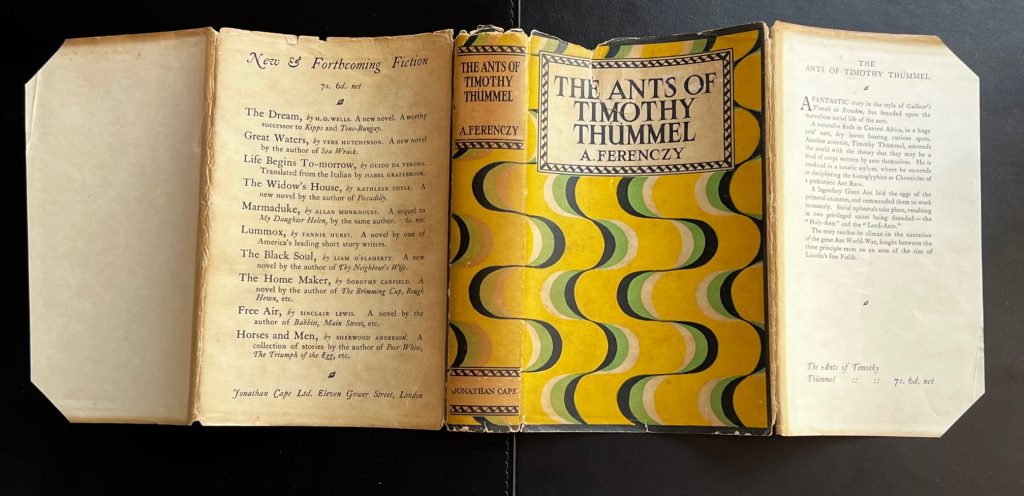 New & Forthcoming Fiction
7s. 6d. net
The Dream, by H. G. WELLS. A new novel. A worthy
successor to Kipps and Tono-Bungay.
Great Waters, by VERE HUTCHINSON. A new novel
by the author of Sea Wrack.
Life Begins To-morrow, by GUIDO DA VERONA.
Translated from the Italian by ISABEL GRAZEBROOK.
The Widow's House, by KATHLEEN COYLE. A
new novel by the author of Piccadilly.
Marmaduke, by ALLAN MONKHOUSE. A sequel to
My Daughter Helen, by the same author. 6s. net.
Lummox, by FANNIE HURST. A novel by one of
America's leading short story writers.
The Black Soul, by LIAM O'FLAHERTY. A new
novel by the author of Thy Neighbour's Wife.
The Home Maker, by DOROTHY CANFIELD. A
novel by the author of The Brimming Cup, Rough
Hewn, etc.
Free Air, by SINCLAIR LEWIS. A novel by the
author of Babbitt, Main Street, etc.
Horses and Men, by SHERWOOD ANDERSON. A
collection of stories by the author of Poor White,
The Triumph of the Egg, etc.
Jonathan Cape Ltd. Eleven Gower Street, London
THE ANTS OF
TIMOTHY
THÜMMEL
A. FERENCZY
JONATHAN CAPE
THE ANTS OF
TIMOTHY
THÜMMEL
A. FERENCZY
THE
ANTS OF TIMOTHY THÜMMEL
A FANTASTIC story in the style of Gulliver's
Travels or Erewhon, but founded upon the
marvellous social life of the ants.
A naturalist finds in Central Africa, in a huge
ants' nest, dry leaves bearing curious spots.
Another scientist, Timothy Thümmel, astounds
the world with the theory that they may be a
kind of script written by ants themselves. He is
confined in a lunatic asylum, where he succeeds
in deciphering the hieroglyphics as Chronicles of
a prehistoric Ant Race.
A legendary Giant Ant laid the eggs of the
primeval ancestors, and commanded them to work
incessantly. Social upheavals take place, resulting
in two privileged castes being founded—the
"Holy-Ants" and the "Lord-Ants."
The story reaches its climax in the narration
of the great Ant World-War, fought between the
three principle races on an area of the size of
Lincoln's Inn Fields.
The Ants of Timothy
Thümmel :: :: 7s. 6d. net